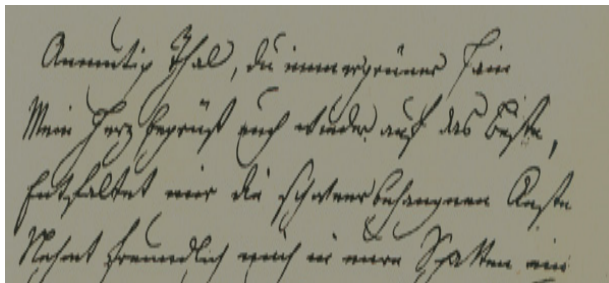 Anmutig Thal, du immergrüner Hain
Mein Herz begrüßt euch wieder auf das beste,
Entfaltet mir die schwerbehangnen Aeste
Nehmt freundlich mich in eure Schatten ein